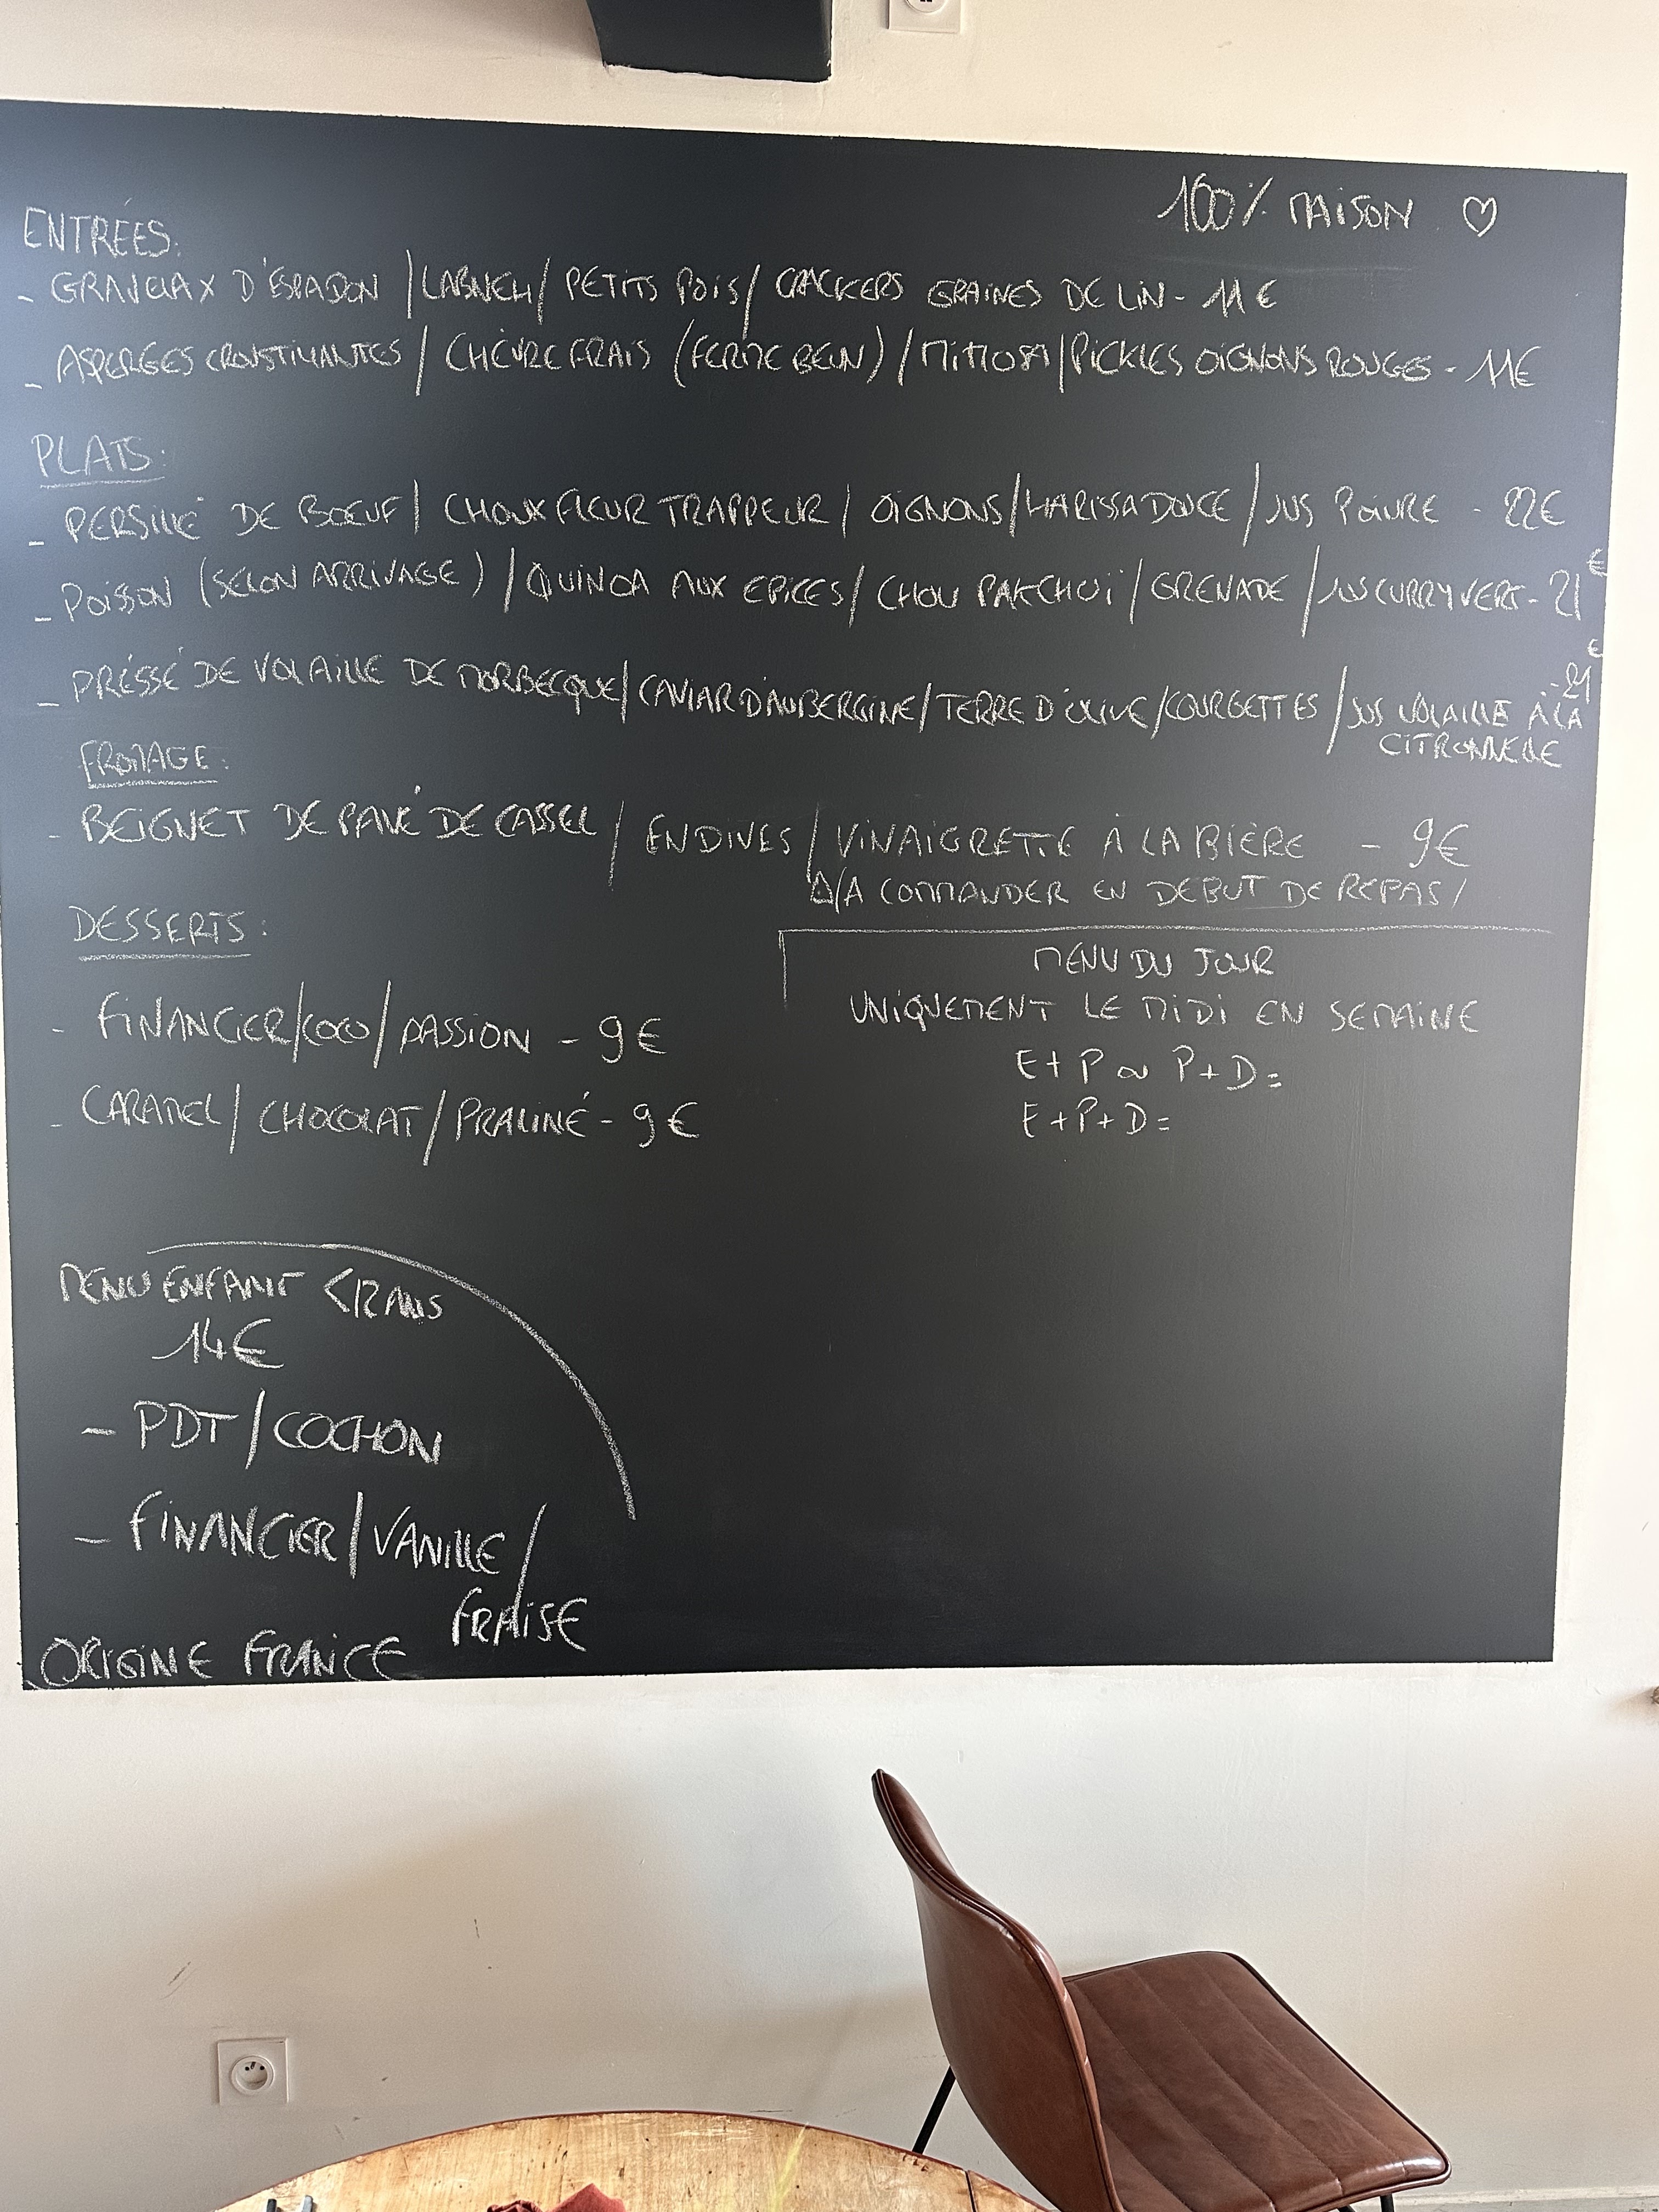 100% MAISON ♡
ENTRÉES:
- GRAVELAX D'ESPADON / LABNEH / PETITS POIS / CRACKERS GRAINES DE LIN - 11€
- ASPERGES CROUSTILLANTES / CHÈVRE FRAIS (FERME BEUN) / MIMOSA / PICKLES OIGNONS ROUGES - 11€
PLATS:
- PERSILLÉ DE BOEUF / CHOUX FLEUR TRAPPEUR / OIGNONS / HARISSA DOUCE / JUS POIVRE - 22€
- POISSON (SELON ARRIVAGE) / QUINOA AUX EPICES / CHOU PAKCHOÏ / GRENADE / JUS CURRY VERT - 21€
- PRÉSSÉ DE VOLAILLE DE MORBECQUE / CAVIAR D'AUBERGINE / TERRE D'OLIVE / COURGETTES / JUS VOLAILLE À LA - 21€
CITRONNELLE
FROMAGE:
- BEIGNET DE PAVÉ DE CASSEL / ENDIVES / VINAIGRETTE À LA BIÈRE - 9€
⚠/A COMMANDER EN DEBUT DE REPAS /
DESSERTS:
- FINANCIER / COCO / PASSION - 9€
- CARAMEL / CHOCOLAT / PRALINÉ - 9€
MENU DU JOUR
UNIQUEMENT LE MIDI EN SEMAINE
E + P ou P + D =
E + P + D =
MENU ENFANT < 12 ANS
14€
- PDT / COCHON
- FINANCIER / VANILLE /
FRAISE
ORIGINE FRANCE